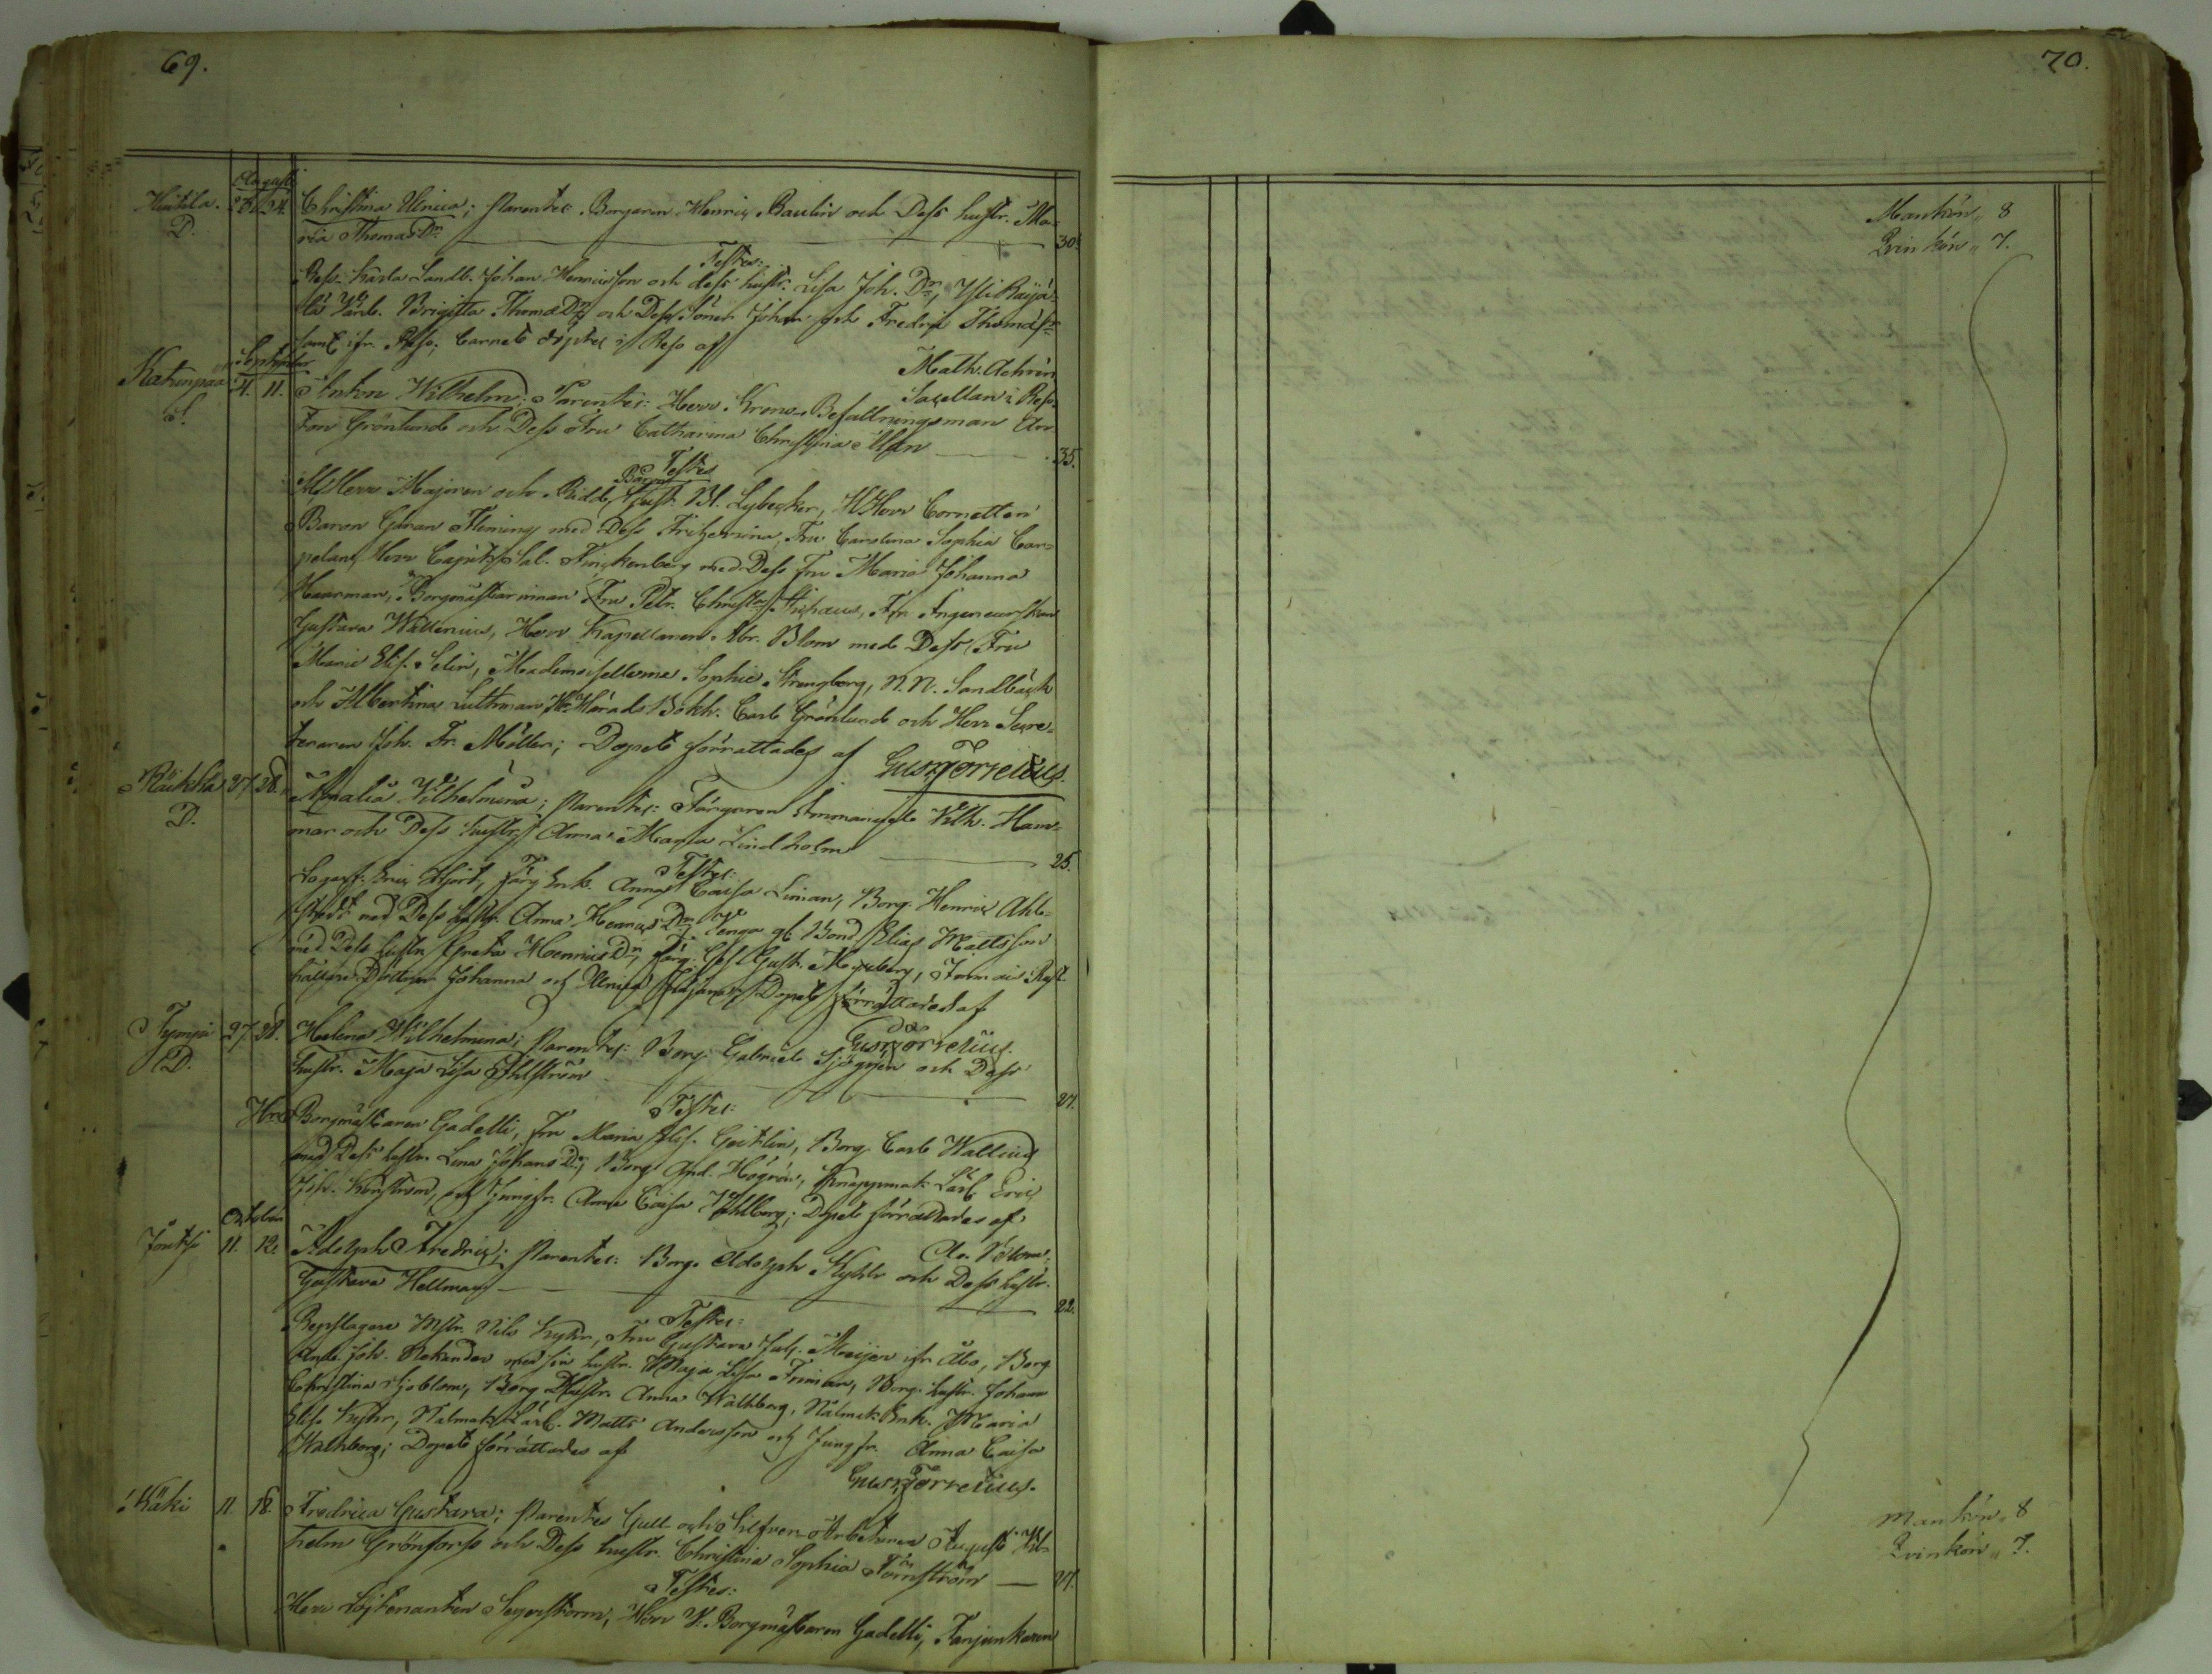 69.
Augusti
Heikila. 23. 24. Christina Ulrica; Parentes. Borgaren Henric Baulin och Dess hustr. Ma-
D. ria Thomæ Dr. 30.
Testes:
Reso Karla Landb. Johan Henricsson och dess hustr. Lisa Joh. Dr,
Brigitta Thomæ Dr och Dess Söner Johan och Fredric Thomæ
samt ifr. Reso; Barnet döptes i Reso af
Math. Achrén
Sacellan i Reso.
September
Katunpää 4. 11. Anton Wilhelm; Parentes: Herr Krono-Befallningsman An-
S. ton Grönlund och Dess Fru Catharina Christina 35.
Testes
Herr Majoren och Ridd. Baron Gust. Bl. Lybecker, H Herr Cornetten
Baron Göran Fleming med Dess Friherrinna, Fru Carolina Sophia Car-
pelan, Herr Capit. Sal. Finckenberg med Dess Fru Maria Johanna
Haarman, Borgmästarinnan Fru Petr. Christ. Fru Ingeneurskan
Gustava Wallenius, Herr Kapellanen Abr. Blom med Dess Fru
Maria Elis. Selin, Mademoisellerna Sophie Strengberg, N.N. Sandbäck
och Albertina Luthman, Hr Härads Bokh. Carl Grönlund och Herr Secre-
teraren Joh. Fr. Möller; Dopet förrättades af Gust. Torrelius.
Räikkä 27. 28. Amalia Vilhelmina; Parentes: Färgaren Emmanuel Vilh. Ham-
D. mar och Dess hustr. Anna Maria Lindholm 25.
Testes:
Eric Hjort, Färg Enk. Anna Caisa Liman, Borg. Henric Ahl-
stedt med Dess hustr. Anna Henrics Dr, Bond. Elias Mattsson
med Dess hustr. Greta Henrics Dr, Färg. Ges. Gust. Myrberg,
Döttrar Johanna och Ulrica Dopet förrättades af
Gust. Torrelius.
Tympä 27. 28. Helena Wilhelmina; Parentes: Borg. Gabriel Sjögren och Dess
D. hustr. Maja Lisa Ahlström 27.
Testes:
Hr Borgmästaren Gadelli, Fru Maria Elis. Geitlin, Borg. Carl Wallin
med Dess hustr. Lena Johans Dr, Borg. And. Högren, Knappmak. Lärl. Eric
Joh. och Jungfr. Anna Caisa Wahlberg; Dopet förrättades af
Ab. Blom.
October
11. 12. Adolph Fredric; Parentes: Borg. Adolph Kyhlr och Dess hustr.
Gustava Hellman 22.
Testes:
Repslagare Mstr. Nils Kyhlr, Fru Gustava Jul. Meijer ifr Åbo, Borg.
And. Joh. Nekander med sin hustr. Maja Lisa Friman, Borg. hustr. Johan
Christina Sjöblom, Borg. Hustr. Anna Wahlberg, Nålmak. Enk. Maria
Elis. Nålmak. Lärl. Matts Andersson och Jungfr. Anna Caisa
Wahlberg; Dopet förrättades af
Gust. Torrelius.
Käki 11. 18. Fredrica Gustava; Parentes Gull- och Silfver-Arbetaren August Vil-
helm Grönforss och Dess hustr. Christina Sophia Törnström 27.
Testes:
Herr Löjtenanten Segerstorm, Herr V. Borgmästaren Gadelli, Fanjunkaren
70.
Mankön „ 8
Qvinkön „ 7.
Mankön „ 8
Qvinkön „ 7.